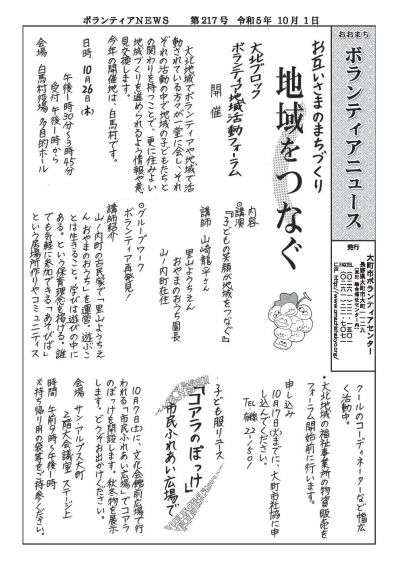 ボランティアNEWS　第217号　令和5年10月1日
おおまち
ボランティアニュース
発行
大町市ボランティアセンター
お互いさまのまちづくり
地域をつなぐ
大北ブロック
ボランティア地域活動フォーラム
開催
大北地域でボランティアや地域で活
動されている方々が一堂に会し、それ
ぞれの活動の中で地域の子どもたちと
の関わりを持つことで、更に住みよい
地域づくりを進められるよう情報や意
見交換します。
今年の開催地は、白馬村です。
日時　10月26日（木）
午後1時30分〜3時45分
受付　午後1時から
会場　白馬村役場　多目的ホール
内容
◎講演
『子どもの笑顔が地域をつなぐ』
講師　山崎龍平さん
里山ようちえん
おやまのおうち園長
山ノ内町在住
◎グループワーク
ボランティア再発見！
講師紹介
山ノ内町の古民家で「里山ようちえ
んおやまのおうち」を運営。遊ぶこ
とは生きること。学びは遊びの中に
ある、という保育理念を掲げる。誰
でも気軽に参加できる「あそびば」
という居場所作りやコミュニティス
クールのコーディネーターなど幅広
く活動中。
・大北地域の福祉事業所の物資販売を
フォーラム開始前に行います。
申し込み
10月17日（火）までに、大町市社協に申
し込んでください。
TEL 22-1501
子ども服リユース
「コアラのぽっけ」
市民ふれあい広場で
10月7日（土）に、文化会館前広場で行
われる「市民ふれあい広場」でコアラ
のぽっけを開設します。秋冬物を展示
します。どうぞお出かけください。
会場　サン・アルプス大町
2階大会議室　ステージ上
時間　午前9時〜午後1時
※持ち帰り用の袋等をご持参ください。